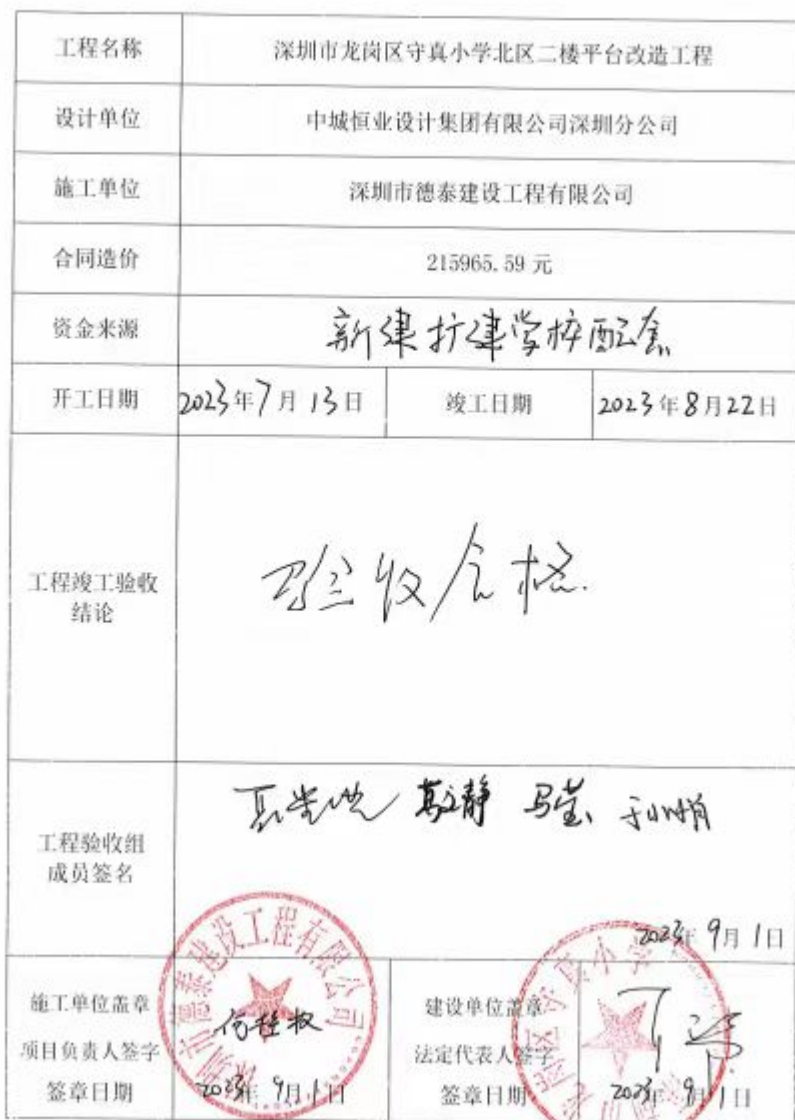 工程名称 深圳市龙岗区守真小学北区二楼平台改造工程
设计单位 中城恒业设计集团有限公司深圳分公司
施工单位 深圳市德泰建设工程有限公司
合同造价 215965.59 元
资金来源 新建扩建学校配套
开工日期 2023年7月13日 竣工日期 2023年8月22日
工程竣工验收
结论
验收合格.
工程验收组
成员签名
2023年9月1日
施工单位盖章
项目负责人签字
签章日期 2023年9月1日
建设单位盖章
法定代表人签字
签章日期 2023年9月1日
深圳市德泰建设工程有限公司
守真小学